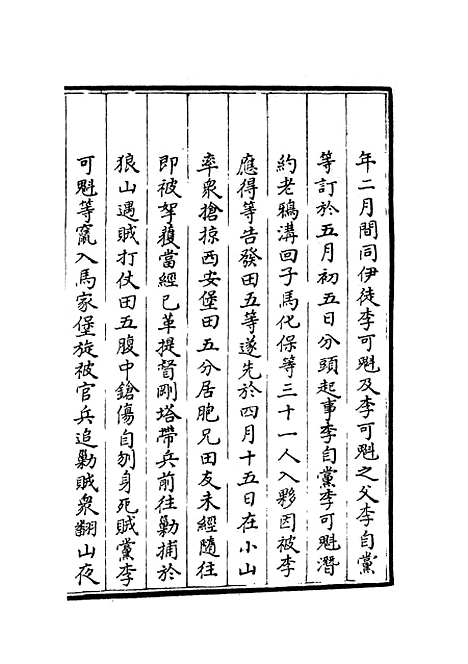 年二月間同伊徒李可魁及李可魁之父李自黨
等訂於五月初五日分頭起事李自黨李可魁潛
約老鴉溝回子馬化保等三十一人入夥因被李
應得等告發田五等遂先於四月十五日在小山
率眾搶掠西安堡田五分居胞兄田友未經隨往
即被拏獲當經已革提督剛塔帶兵前往勦捕於
狼山遇賊打仗田五腹中鎗傷自刎身死賊黨李
可魁等竄入馬家堡旋被官兵追勦賊衆翻山夜